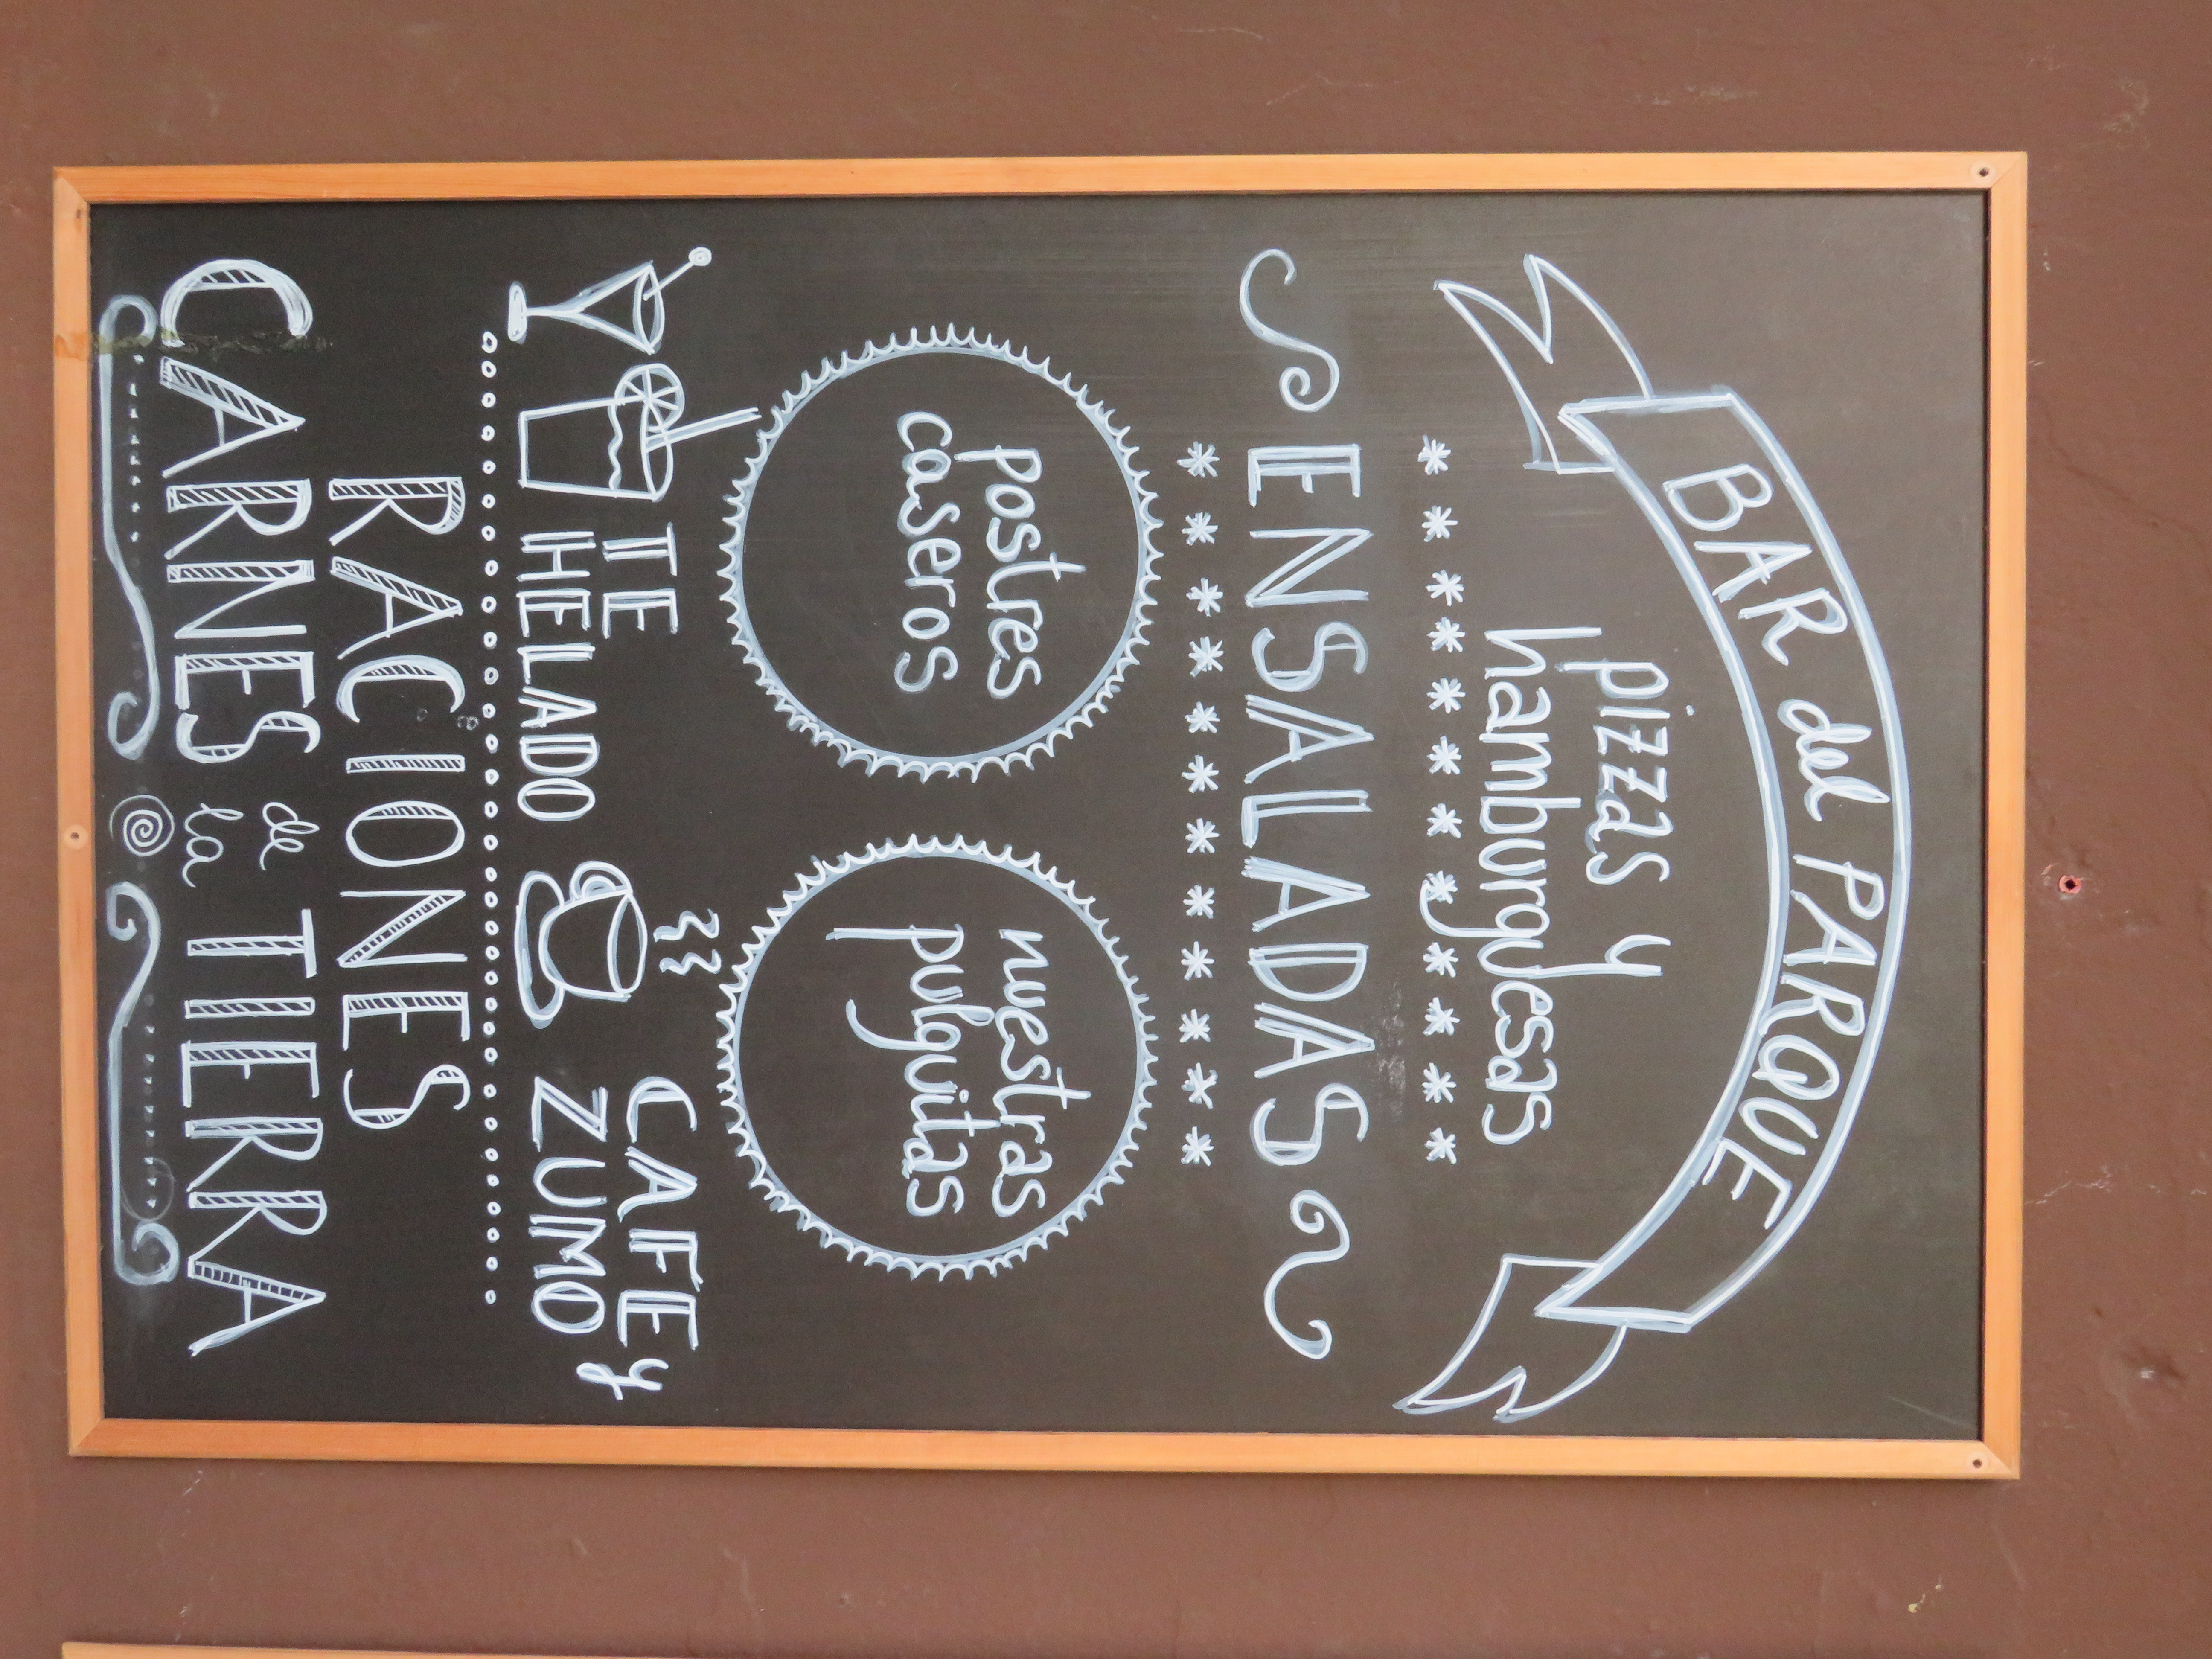 BAR del PARQUE
pizzas y
hamburguesas
ENSALADAS
postres
caseros
nuestras
pulguitas
TE
HELADO
CAFE y
ZUMO
RACIONES
CARNES de la TIERRA